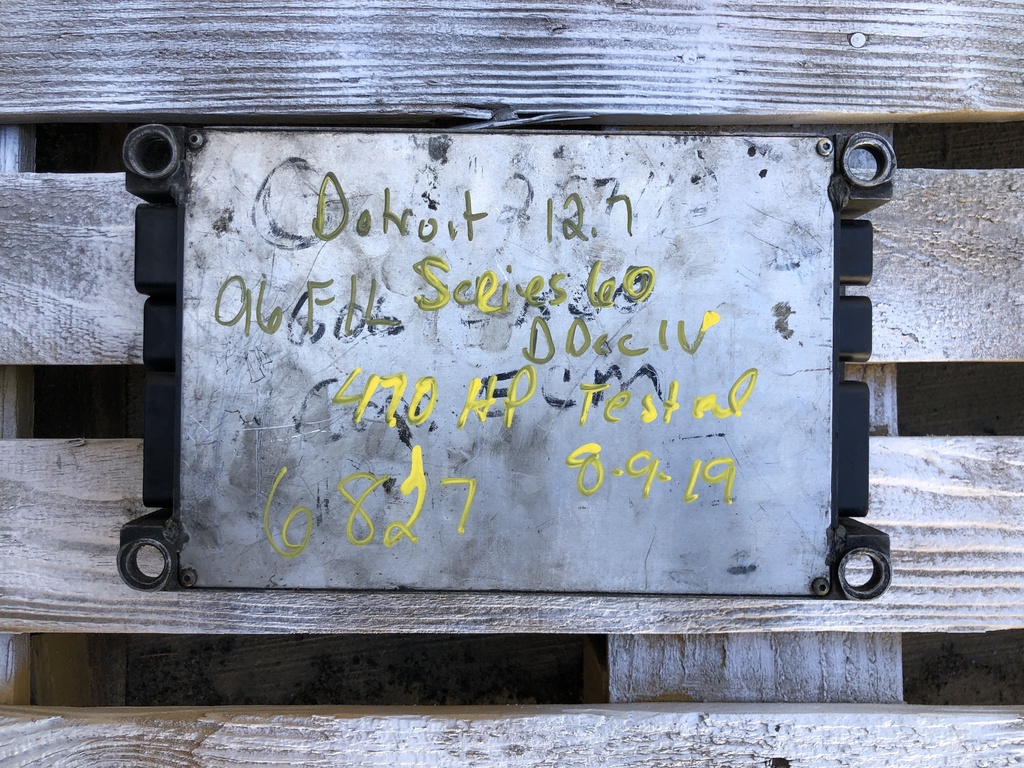 Detroit 12.7
Series 60
96 FLL
DDec IV
470 HP Tested
8-9-19
6827